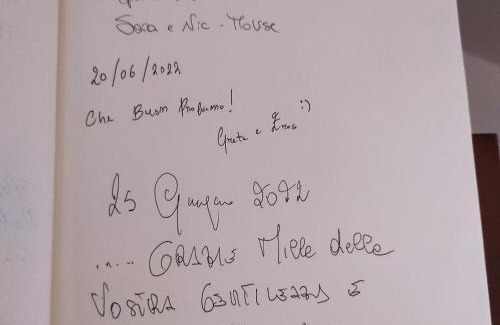 Sara e Nic - House
20/06/2022
Che Buon Profumo!
Greta e Eros :)
25 Giugno 2022
..... GRAZIE Mille della
VOSTRA GENTILEZZA E